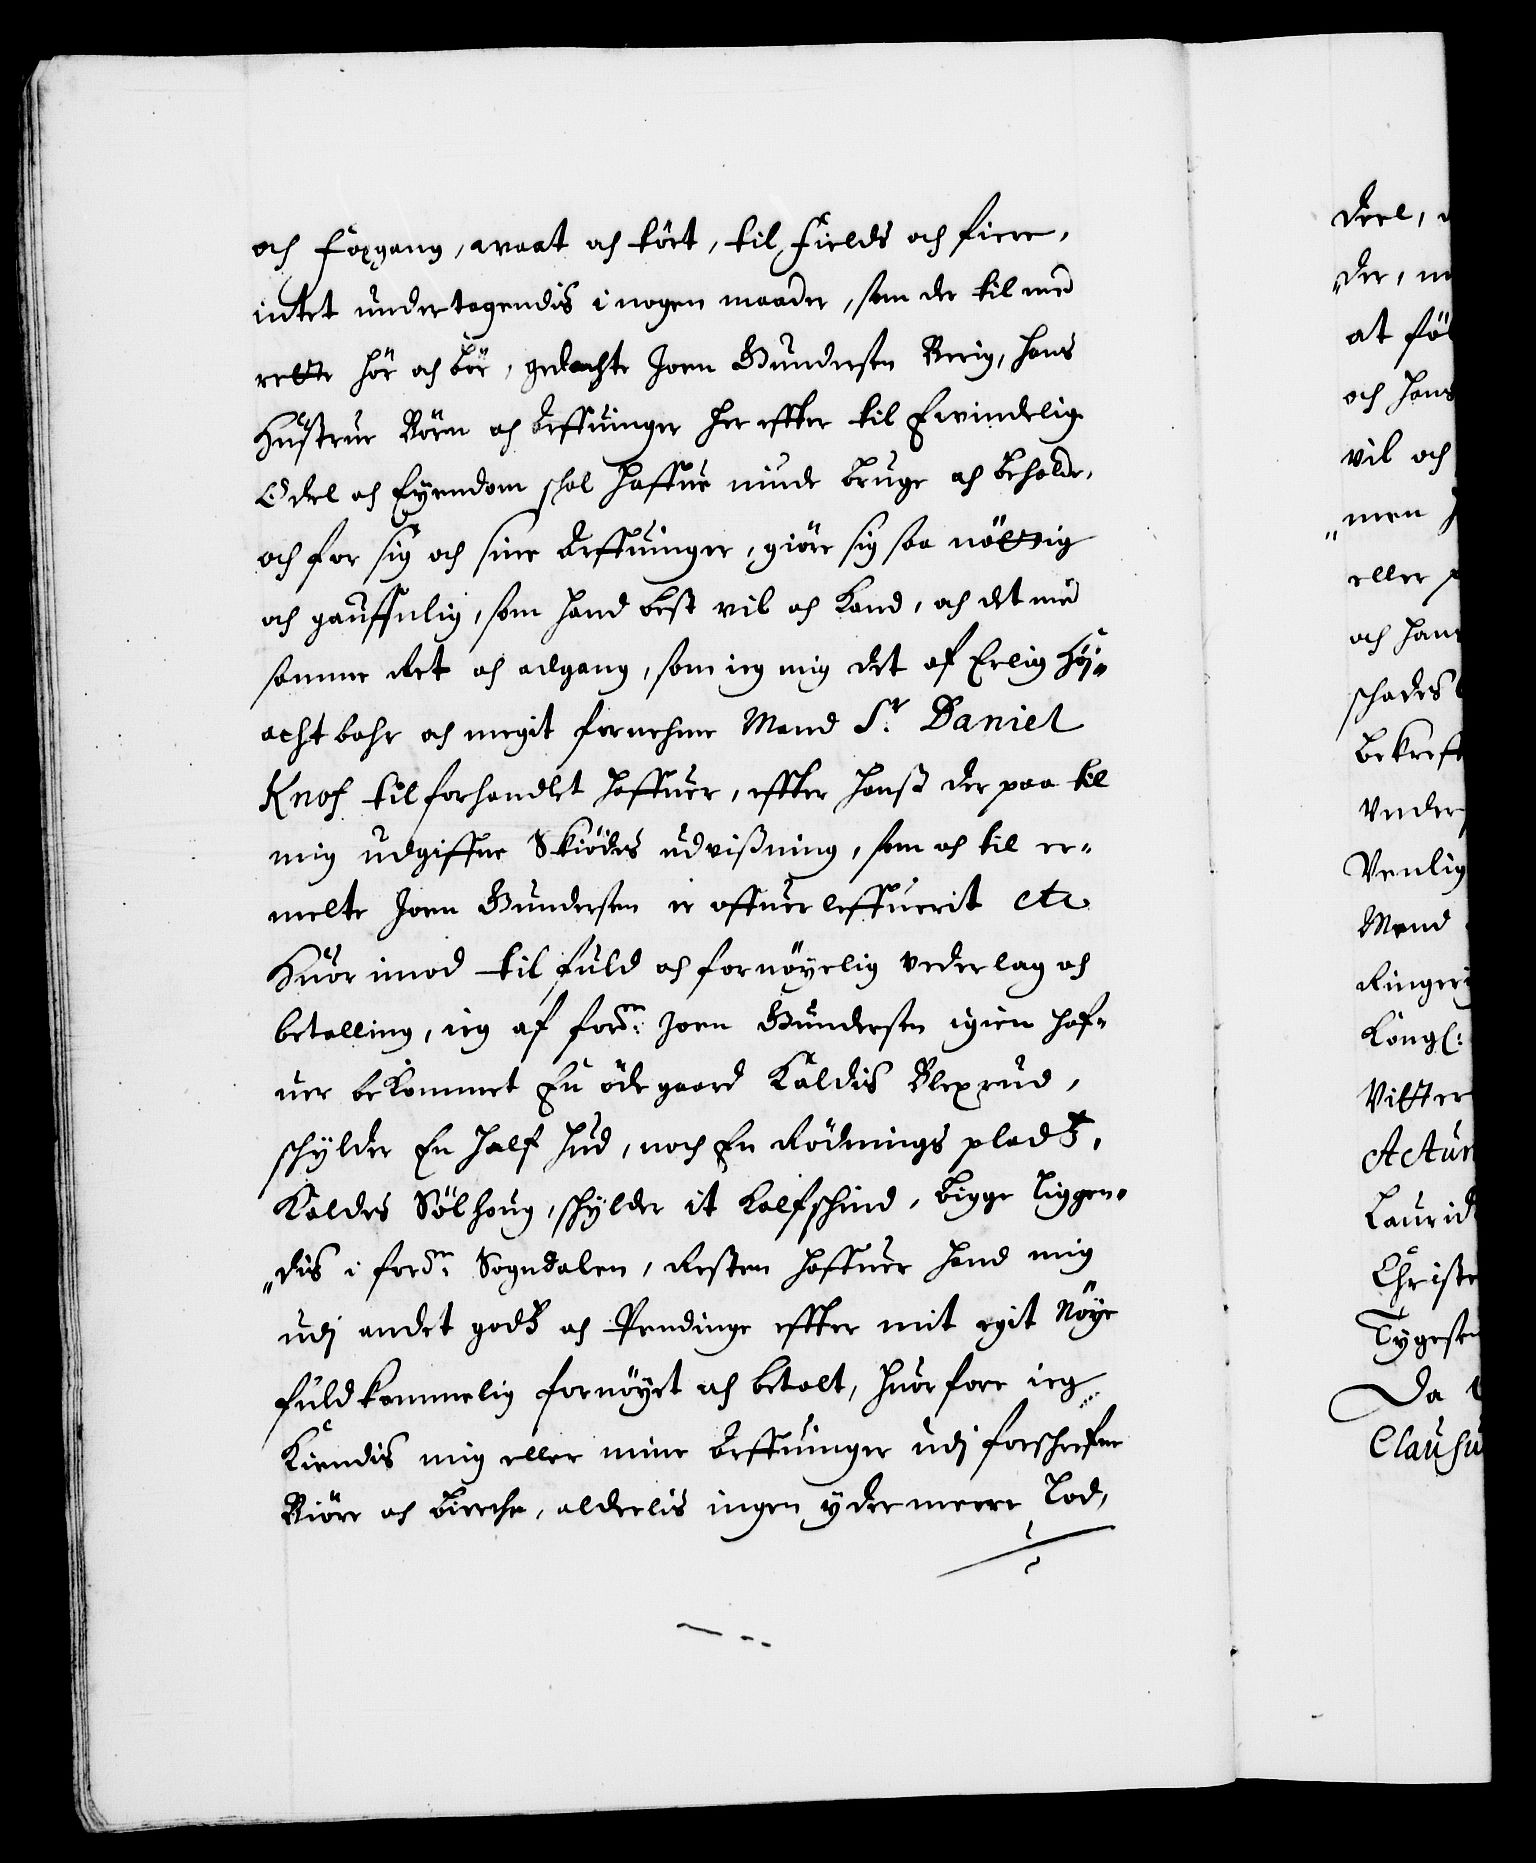 och foxgang, waat och tört, til Fields och fiere,
intet undertagendis i nogen maader, som der til med
rette hör och bör, gedachte Joen Gundersen Berig, hans
Hustrue Börn och Arffuinger her effter til Ewindelig
Odel och Eyendom schal haffue niude bruge och beholde,
och for sig och sine Arffuinger, giöre sig saa nöttig
och gauffnlig, som hand best vil och kand, och det med
samme Ret och adgang, som ieg mig det af Erlig höy-
acht bahr och megit fornehme Mand Sr. Daniel
Knof tilforhandlet haffuer, effter hanß der paa til
mig udgiffne Skiödes udvißning, som och til er-
melte Joen Gundersen er offuerleffuerit etc
Huor imod til fuld och fornöyelig vederlag och
betalling, ieg af fordn: Joen Gundersen igien haf-
uer bekommet En öde gaard kaldis Blexrud,
schylder En half hud, noch En Rödnings pladtz,
kaldes Sölhoug, schylder it kalfschind, begge liggen-
dis i fordn: Sogndalen, Resten haffuer hand mig
udj andet godtz och Pendinge effter mit egit Nöye
fuldkommelig fornöyet och betalt, huorfore ieg
kiendis mig eller mine Arffuinger udj forschrefne
Biöre och Bierche, alderlis ingen ydermeere Lod,
deel,
der,
at
och hans
vil och
men
eller
och hans
schades
bekreft
Under
Venlig
Mand
Ringeri
Kongl:
Vitter
Actum
Laurid
Christe
Tygesen
Da
Clausu